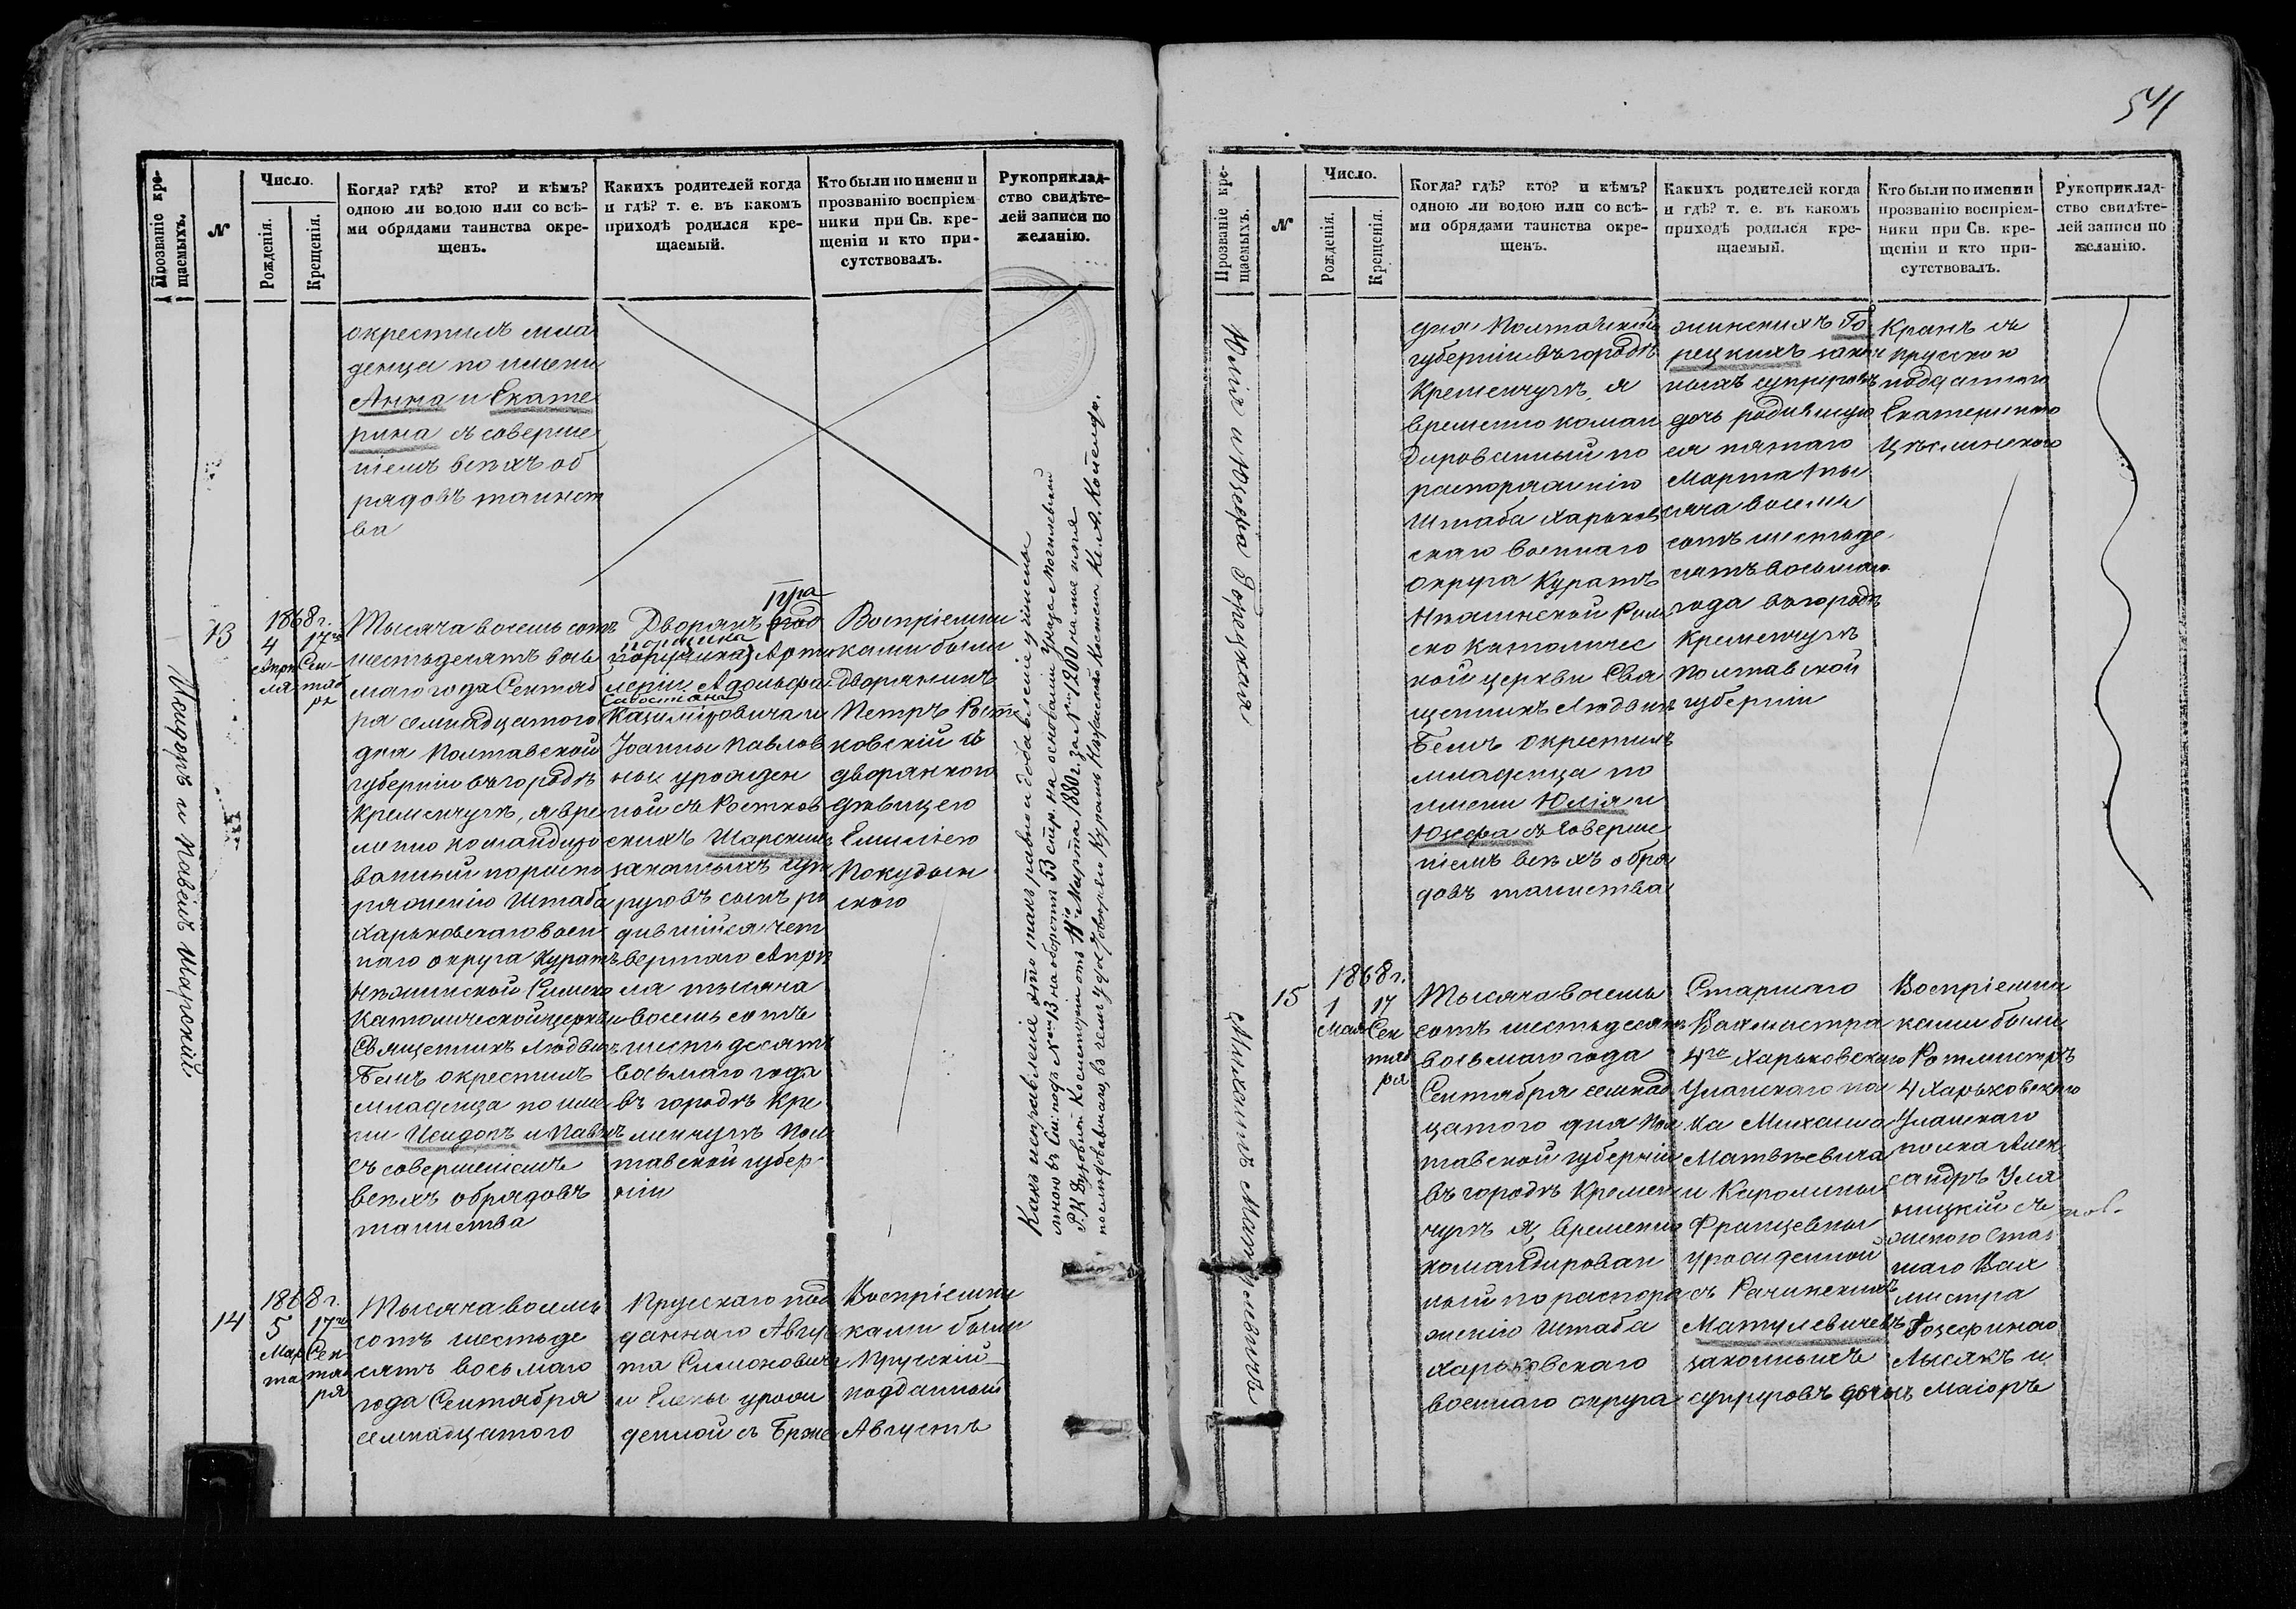 54
Прозваніе кре-
щаемыхъ.
№
Число.
Рожденія.
Крещенія.
Когда? гдѣ? кто? и кѣмъ?
одною ли водою или со всѣ-
ми обрядами таинства окре-
щенъ.
Какихъ родителей когда
и гдѣ? т. е. въ какомъ
приходѣ родился кре-
щаемый.
Кто были по имени и
прозванію воспріем-
ники при Св. кре-
щеніи и кто при-
сутствовалъ.
Рукоприклад-
ство свидѣте-
лей записи по
желанію.
окрестилъ мла
денца по имени
Анна и Екате
рина съ соверше
ніемъ всѣхъ об
рядовъ таинст
ва
Исидоръ и Павелъ Шарскій
13
1868 г.
4
Апрѣ
ля
17го
Сен-
тяб
ря
Тысяча восемь сотъ
шестьдесятъ вось
маго года Сентяб
ря семнадцатого
дня Полтавской
губерніи въ городѣ
Кременчугѣ, я вре
менно командиро
ванный по распо
ряженію Штаба
Харьковскаго воен
наго округа Куратъ
Нѣжинской Римско
Католической церкви
Священникъ Людвикъ
Бемъ окрестилъ
младенца по име
ни Исидоръ и Павелъ
съ совершеніемъ
всѣхъ обрядовъ
таинства
Дворянъ
поручика Арти
леріи Адольфа
Севостіана
Казиміровича и
Іоанны Павлов
ны урожден
ной съ Ростков
скихъ Шарскихъ
законныхъ суп
руговъ сынъ ро
дившійся чет
вертаго Апрѣ
ля тысяча
восемь сотъ
шестьдесятъ
восьмаго года
въ городѣ Кре
менчугѣ Пол
тавской губер
ніи
Воспріемни
ками были
дворянинъ
Петръ Рост
ковскій съ
дворянкою
дѣвицею
Емиліею
Покудын
скою
Какъ исправленіе это такъ равно и добавленіе учинены
мною въ сей подъ № 13 на оборотѣ 53 стр. на основаніи Указа Могилевской
Р. К. Духовной Консисторіи отъ 11го Марта 1880 г. за № 1200 на мое имя
послѣдовавшаго, въ чемъ удостовѣряю Куратъ
14
1868 г.
5
Мар
та
17го
Сен
тяб
ря
Тысяча восемь
сотъ шестьде
сятъ восьмаго
года Сентября
семнадцатого
Прусскаго под
даннаго Авгус
та Симоновича
и Елены урож
денной съ Брже
Воспріемни
ками были
Прусскій
подданный
Августъ
Прозваніе кре-
щаемыхъ.
№
Число.
Рожденія.
Крещенія.
Когда? гдѣ? кто? и кѣмъ?
одною ли водою или со всѣ-
ми обрядами таинства окре-
щенъ.
Какихъ родителей когда
и гдѣ? т. е. въ какомъ
приходѣ родился кре-
щаемый.
Кто были по имени и
прозванію воспріем-
ники при Св. кре-
щеніи и кто при-
сутствовалъ.
Рукоприклад-
ство свидѣте-
лей записи по
желанію.
Юлія и Юзефа Горецкая
дня Полтавской
губерніи въ городѣ
Кременчугѣ, я
временно коман
дированный по
распоряженію
Штаба Харьков
скаго военнаго
округа Куратъ
Нѣжинской Рим
ско Католичес
кой церкви Свя
щенникъ Людвикъ
Бемъ окрестилъ
младенца по
имени Юлія и
Юзефа съ соверше
ніемъ всѣхъ обря
довъ таинства
жинскихъ Го
рецкихъ закон
ныхъ супруговъ
дочь родившую
ся пятаго
Марта ты
сяча восемь
сотъ шестьде
сятъ восьмаго
года въ городѣ
Кременчугѣ
Полтавской
губерніи
Кранъ съ
прусскою
подданною
Екатериною
Цѣслинскою
Михаилъ Матулевичъ
15
1868 г.
1
Мая
17
Сен
тяб
ря
Тысяча восемь
сотъ шестьдесятъ
восьмаго года
Сентября семнад
цатого дня Пол
тавской губерніи
въ городѣ Кремен
чугѣ я, временно
командирован
ный по распоря
женію Штаба
Харьковскаго
военнаго округа
Старшаго
Вахмистра
4го Харьковскаго
Уланскаго пол
ка Михаила
Матвѣевича
и Каролины
Францевны
урожденной
съ Рачинскихъ
Матулевичевъ
законныхъ
супруговъ дочь
Воспріемни
ками были
Ротмистръ
4 Харьковскаго
Уланскаго
полка Алек
сандръ Уля
ницкій съ
женою Стар
шаго Вах
мистра
Іозефиною
Лысякъ и
Маіоръ